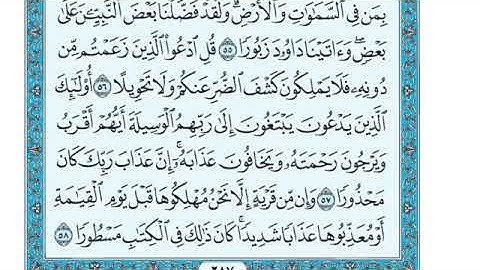 بِمَن فِي ٱلسَّمَٰوَٰتِ وَٱلۡأَرۡضِۗ وَلَقَدۡ فَضَّلۡنَا بَعۡضَ ٱلنَّبِيِّـۧنَ عَلَىٰ
بَعۡضٖۖ وَءَاتَيۡنَا دَاوُۥدَ زَبُورٗا ٥٥ قُلِ ٱدۡعُواْ ٱلَّذِينَ زَعَمۡتُم مِّن
دُونِهِۦ فَلَا يَمۡلِكُونَ كَشۡفَ ٱلضُّرِّ عَنكُمۡ وَلَا تَحۡوِيلًا ٥٦ أُوْلَٰٓئِكَ
ٱلَّذِينَ يَدۡعُونَ يَبۡتَغُونَ إِلَىٰ رَبِّهِمُ ٱلۡوَسِيلَةَ أَيُّهُمۡ أَقۡرَبُ
وَيَرۡجُونَ رَحۡمَتَهُۥ وَيَخَافُونَ عَذَابَهُۥٓۚ إِنَّ عَذَابَ رَبِّكَ كَانَ
مَحۡذُورٗا ٥٧ وَإِن مِّن قَرۡيَةٍ إِلَّا نَحۡنُ مُهۡلِكُوهَا قَبۡلَ يَوۡمِ ٱلۡقِيَٰمَةِ
أَوۡ مُعَذِّبُوهَا عَذَابٗا شَدِيدٗاۚ كَانَ ذَٰلِكَ فِي ٱلۡكِتَٰبِ مَسۡطُورٗا ٥٨
٢٨٧